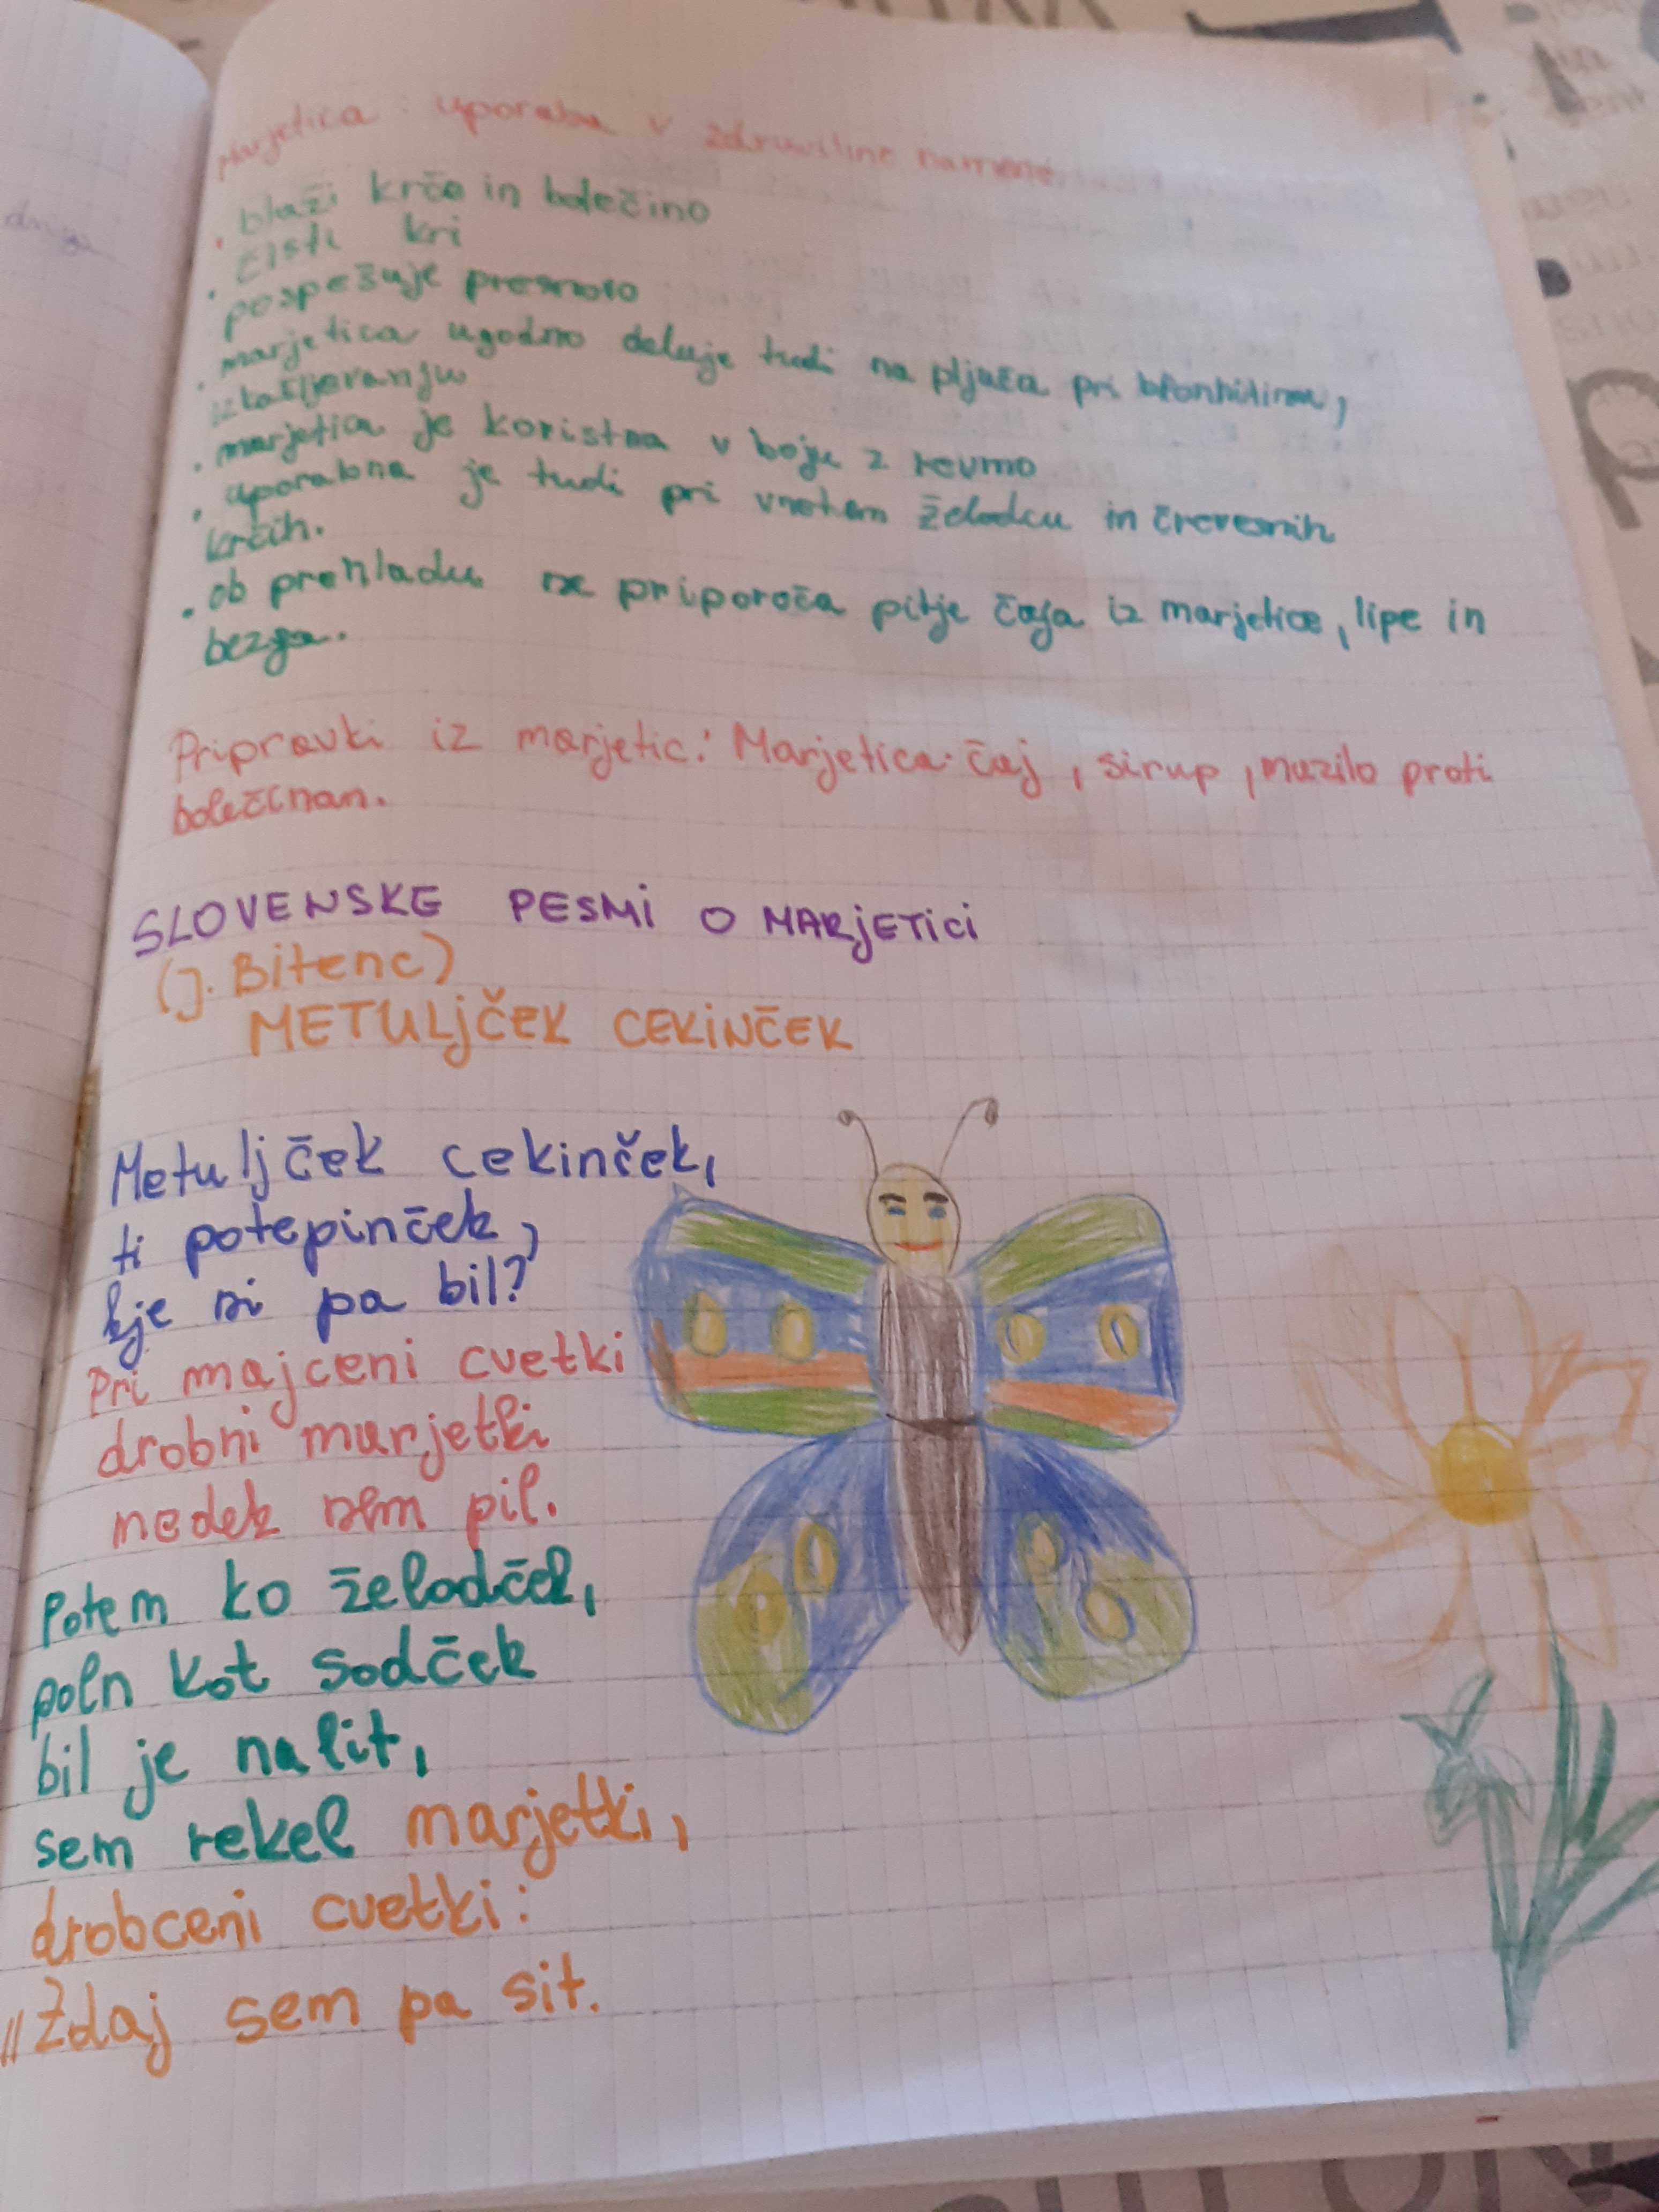 Marjetica : uporaba v zdravilne namene
. blaži krče in bolečino
. čisti kri
pospešuje presnovo
. marjetica ugodno deluje tudi na pljuča pri bronhitisu,
izkašljevanju
. marjetica je koristna v boju z revmo
. uporabna je tudi pri vnetem želodcu in črevesnih
krčih.
. ob prehladu se priporoča pitje čaja iz marjetice, lipe in
bezga.
Pripravki iz marjetic: Marjetica čaj, sirup, mazilo proti
bolečinan.
SLOVENSKE PESMI O MARJETICI
(J. Bitenc)
METULJČEK CEKINČEK
Metuljček cekinček,
ti potepinček,
kje si pa bil?
Pri majceni cvetki
drobni marjetki
medek sem pil.
Potem ko želodček,
poln kot sodček
bil je nalit,
sem rekel marjetki,
drobceni cvetki:
"Zdaj sem pa sit.